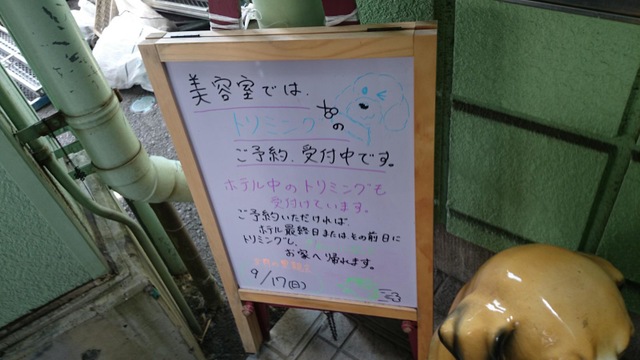 美容室では、
トリミングの
ご予約、受付中です。
ホテル中のトリミングも
受付けています。
ご予約いただければ
ホテル最終日または、その前日に
トリミングし、
お家へ帰れます。
9/17(日)